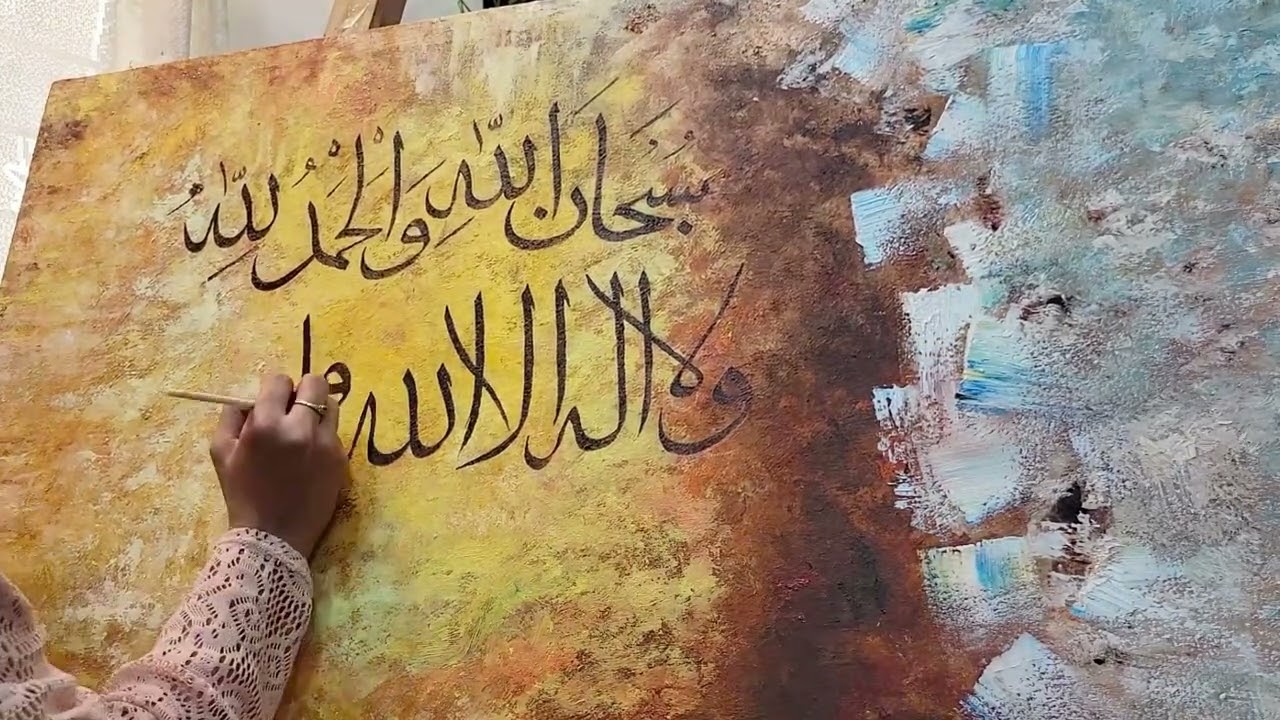 سُبْحَانَ اللّٰهِ وَالْحَمْدُ لِلّٰهِ
ولا اله الا الله وا